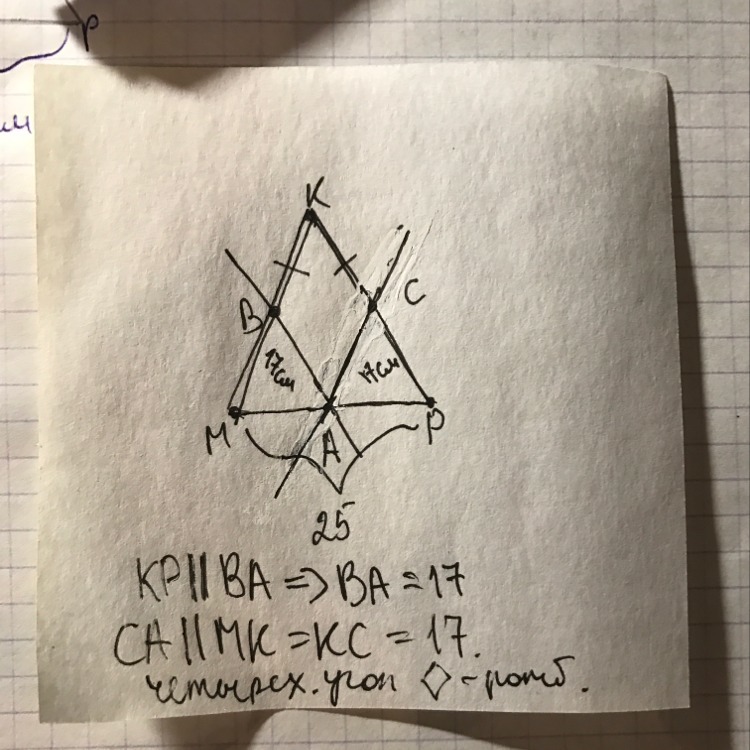 P
K
B
C
17см
17см
M
A
P
25
KP||BA => BA = 17
CA||MK = KC = 17.
четырех.угол ◇ - ромб.